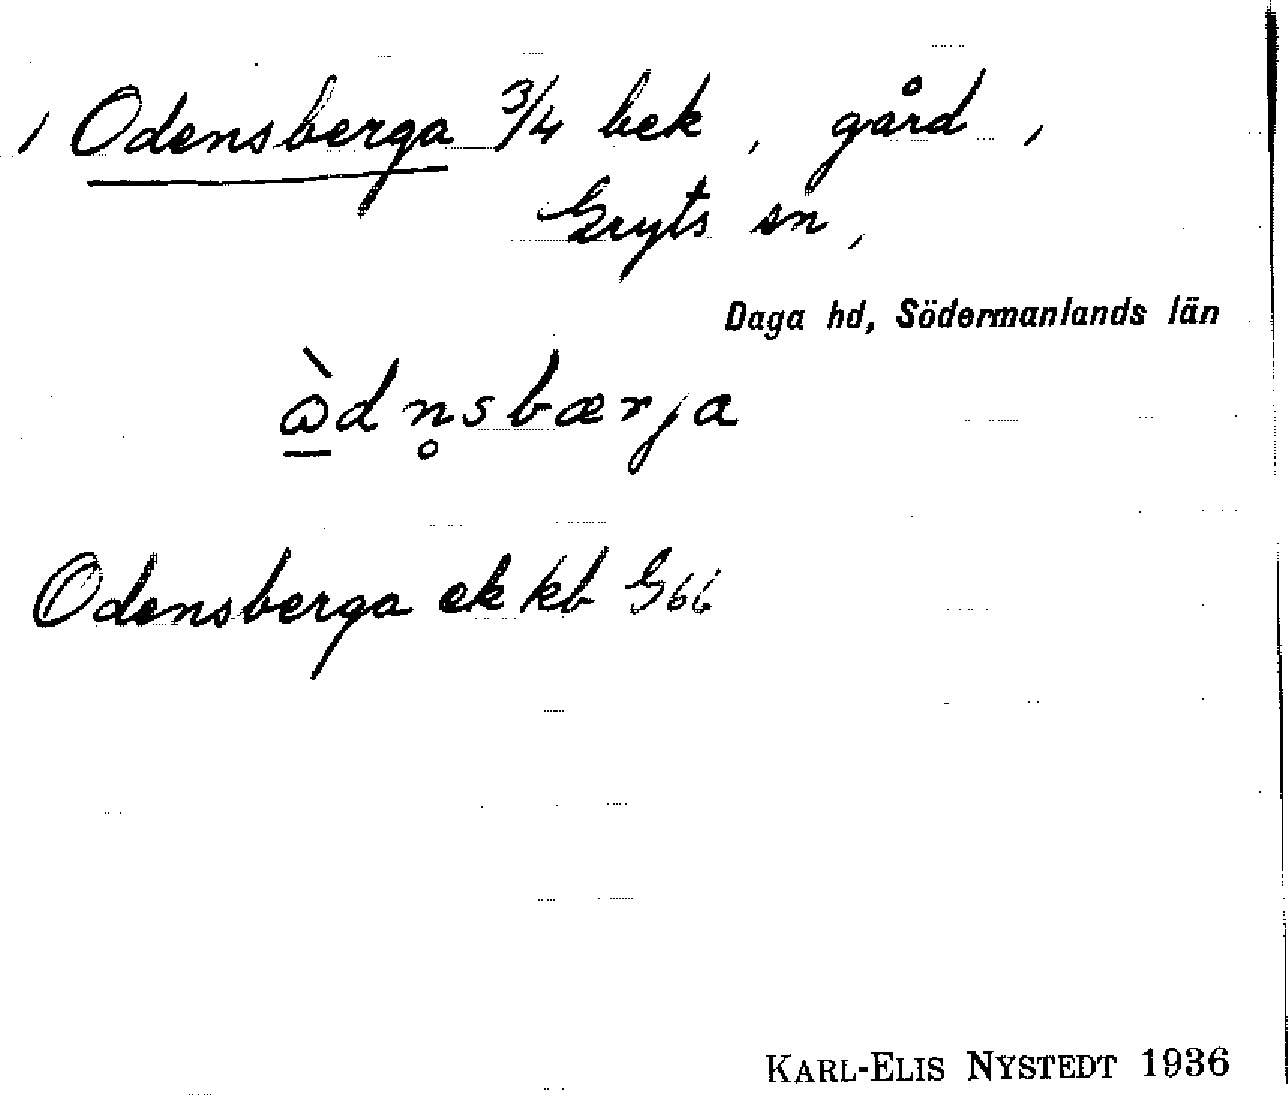 / Odensberga 3/4 bek, gård,
Gryts sn,
Daga hd, Södermanlands län
ὼ̲dn̥sbærja
Odensberga ek kb G66
KARL-ELIS NYSTEDT 1936